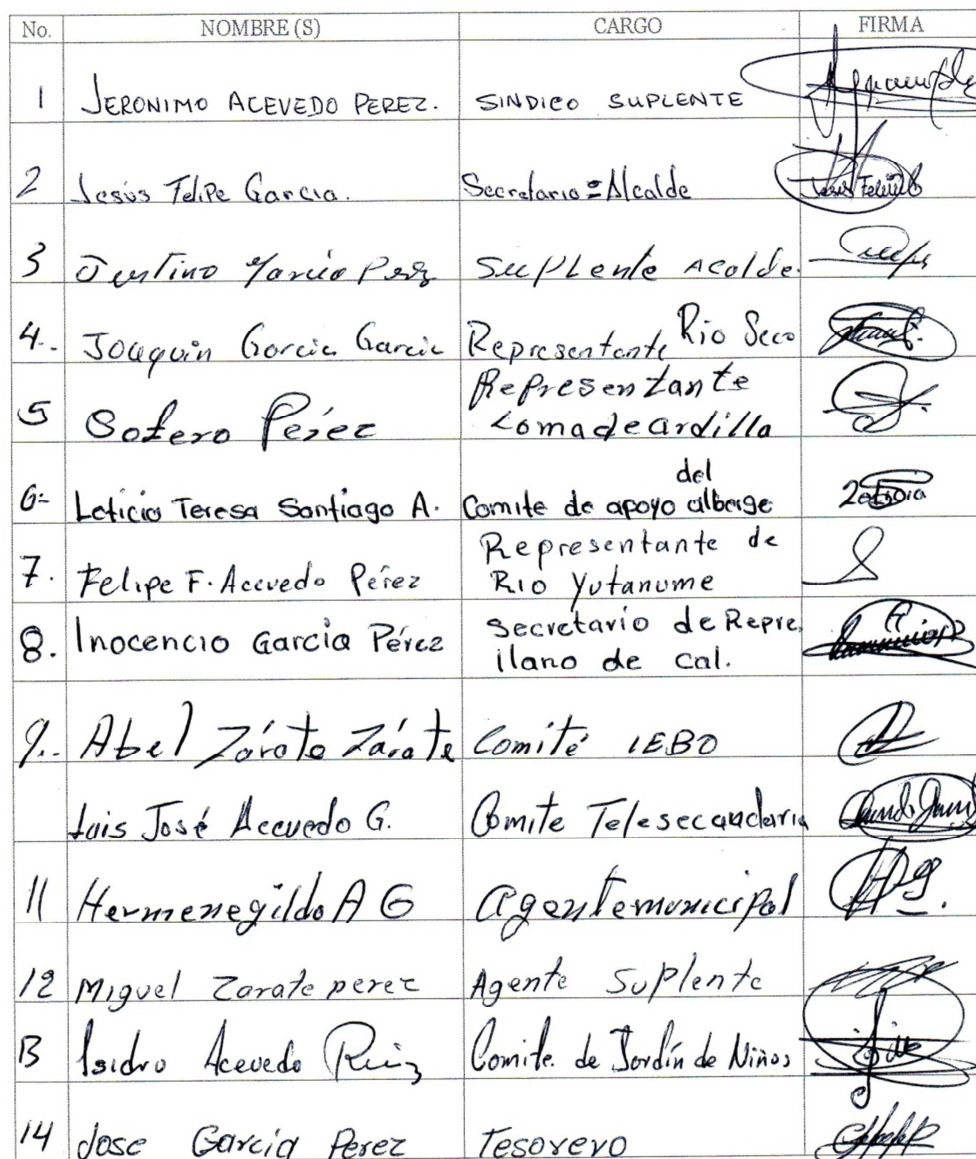 No. NOMBRE (S) CARGO FIRMA
1 JERONIMO ACEVEDO PEREZ. SINDICO SUPLENTE
2 Jesús Felipe Garcia. Secretario = Alcalde Jesus Felipe
3 Perez Suplente Acalde.
4.. Joaquin Garcia Garcia Representante Rio Seco
5 Sotero Pérez Representante
Lomadeardilla
6- Leticia Teresa Santiago A. Comite de apoyo del alberge
7. Felipe F. Acevedo Pérez Representante de
Rio Yutanume
8. Inocencio Garcia Pérez Secretario de Repre.
llano de cal.
9.. Abel Zárate Zárate Comité IEBO
Luis José Acevedo G. Comite Telesecundaria
11 Hermenegildo A G Agentemunicipal
12 Miguel Zarate perez Agente Suplente
13 Isidro Acevedo Ruiz Comite. de Jardín de Niños
14 Jose Garcia Perez Tesorero